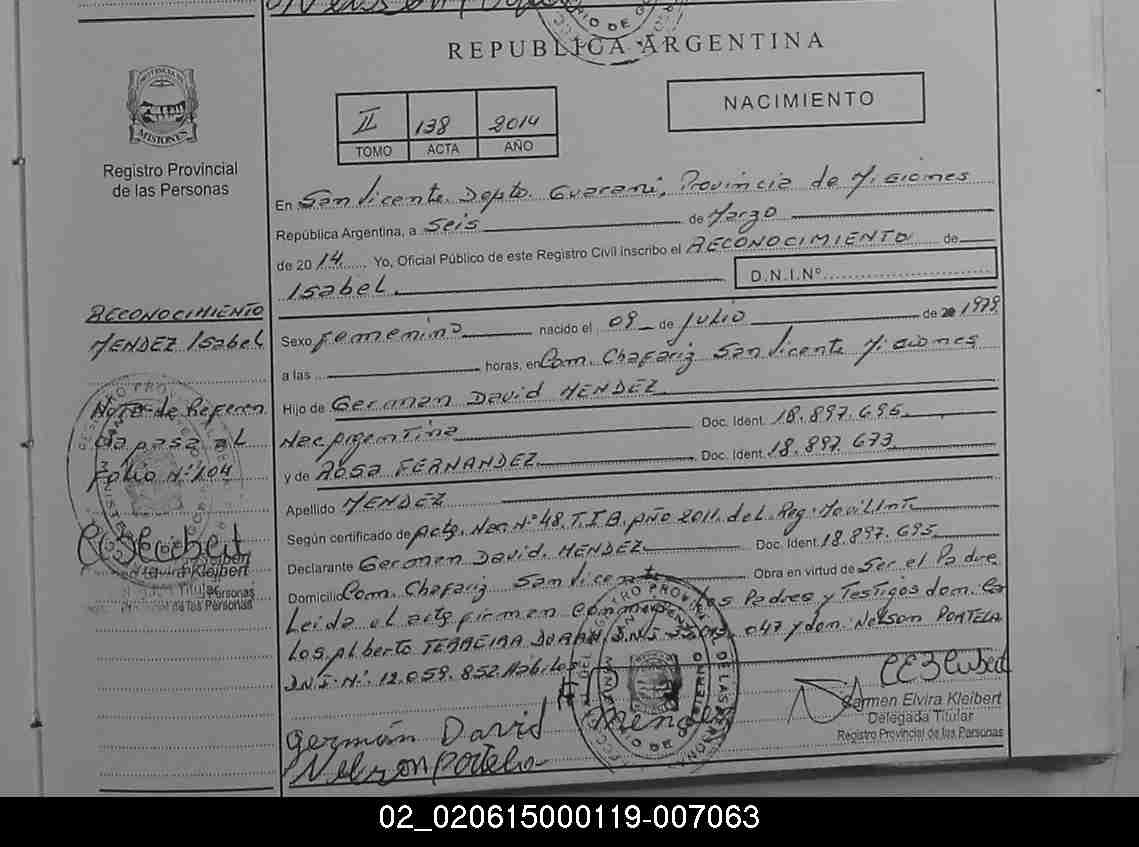 REPUBLICA ARGENTINA
PROVINCIA DE
MISIONES
Registro Provincial
de las Personas
II 138 2014
TOMO ACTA AÑO
NACIMIENTO
En San Vicente Depto. Guarani, Provincia de Misiones
República Argentina, a Seis de Marzo
de 2014 Yo, Oficial Público de este Registro Civil inscribo el RECONOCIMIENTO de
Isabel. D.N.I.Nº
RECONOCIMIENTO
MENDEZ Isabel
Nota de Referen
cia pasa al
Folio Nº 104
Sexo femenino nacido el 09 de Julio de 1979
a las horas, en Com. Chafariz San Vicente Misiones
Hijo de German David MENDEZ
Nac Argentina Doc. Ident. 18.897.695
y de Rosa FERNANDEZ Doc. Ident. 18.897.673
Apellido MENDEZ
Según certificado de Acta. Nac. Nº 48. T. I B. Año 2011. del Reg. Movil Int.
Declarante German David. MENDEZ Doc. Ident. 18.897.695
Domicilio Com. Chafariz San Vicente Obra en virtud de Ser el Padre
Leida el acta firman conmigo los Padres y Testigos dom. Car
los Alberto FERREIRA DURAN, D.N.I. 047 y don. Nelson PORTELA
D.N.I. Nº. 12.059.852 Habiles
Germán David Mendez
Nelson Portela
Carmen Elvira Kleibert
Delegada Titular
Registro Provincial de las Personas
02_020615000119-007063